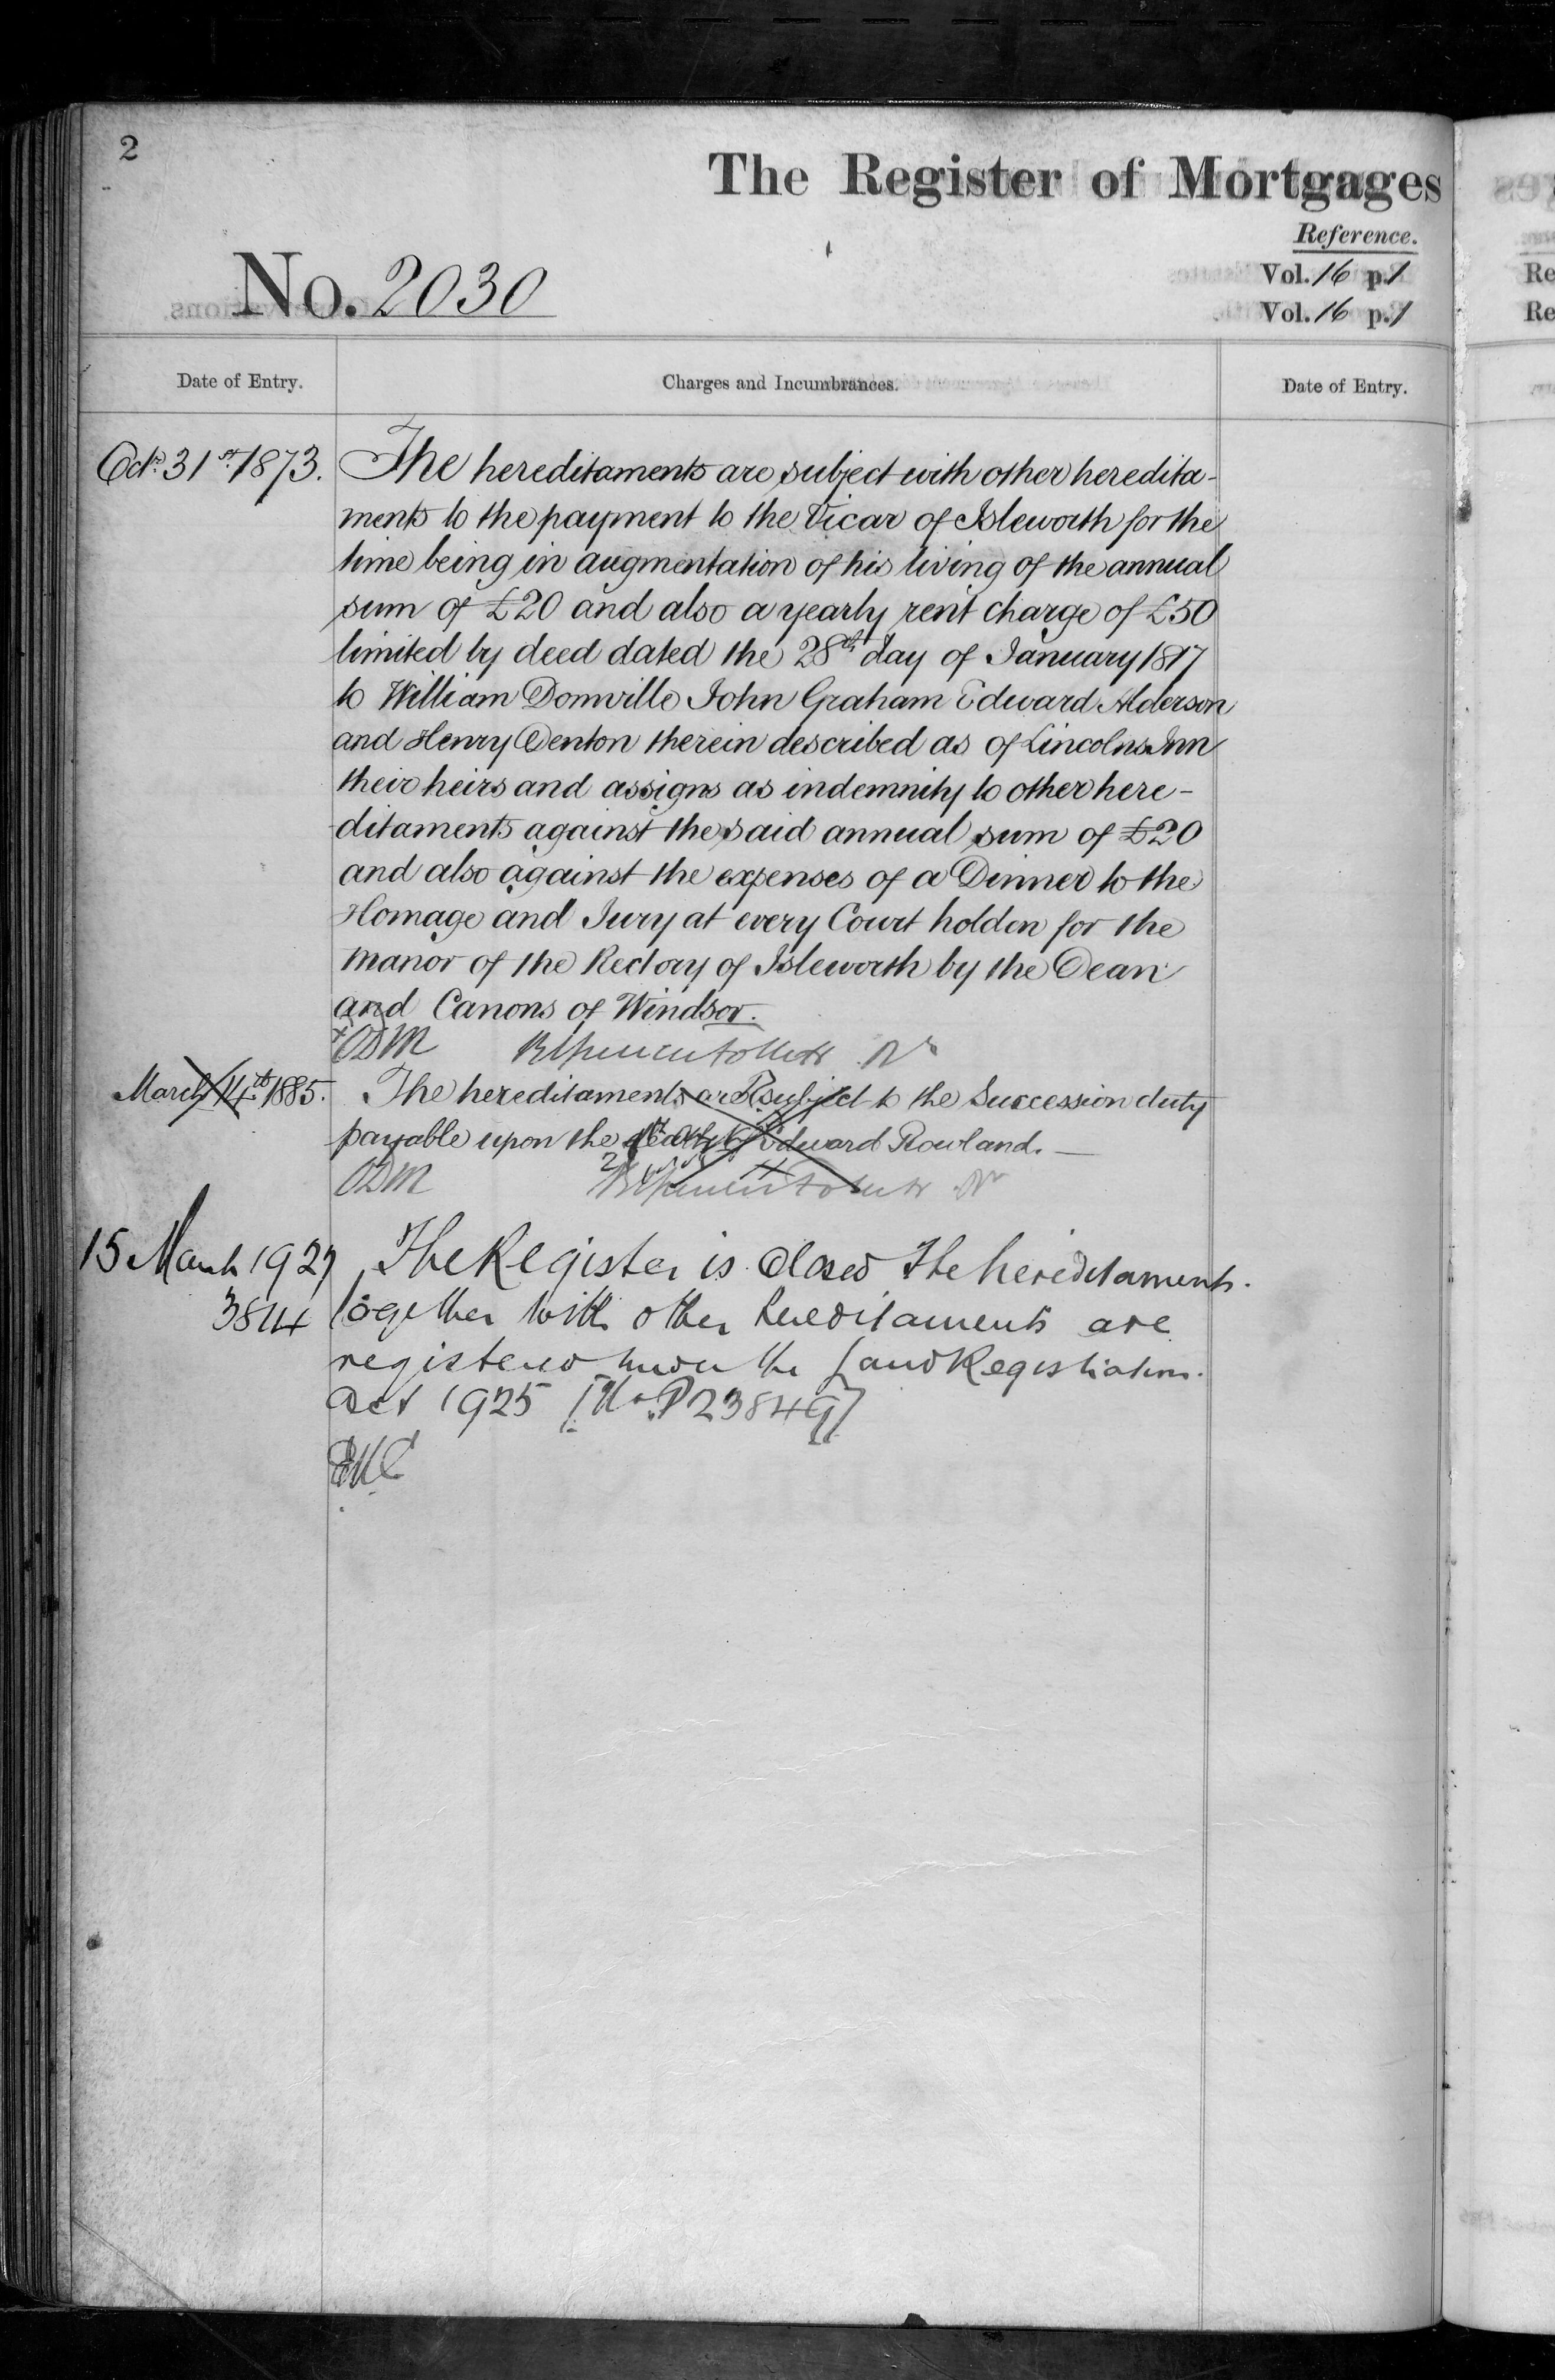 2
The Register of Mortgages
Reference.
No. 2030
Vol. 16 p. 1
Vol. 16 p. 1
Date of Entry.
Charges and Incumbrances.
Date of Entry.
Octr. 31st. 1873.
The hereditaments are subject with other heredita-
ments to the payment to the Vicar of Isleworth for the
time being in augmentation of his living of the annual
sum of £20 and also a yearly rent charge of £50
limited by deed dated the 28th day of January 1817
to William Domville John Graham Edward Alderson
and Henry Denton therein described as of Lincolns Inn
their heirs and assigns as indemnity to other here-
ditaments against the said annual sum of £20
and also against the expenses of a Dinner to the
Homage and Jury at every Court holden for the
Manor of the Rectory of Isleworth by the Dean
and Canons of Windsor.
ODM
March 14th 1885.
The hereditaments are subject to the Succession duty
payable upon the death of Edward Rowland.
ODM
15 March 1927
3814
The Register is closed The hereditaments.
together with other hereditaments are
registered under the Land Registration
Act 1925 [No. P23849]
Re
Re